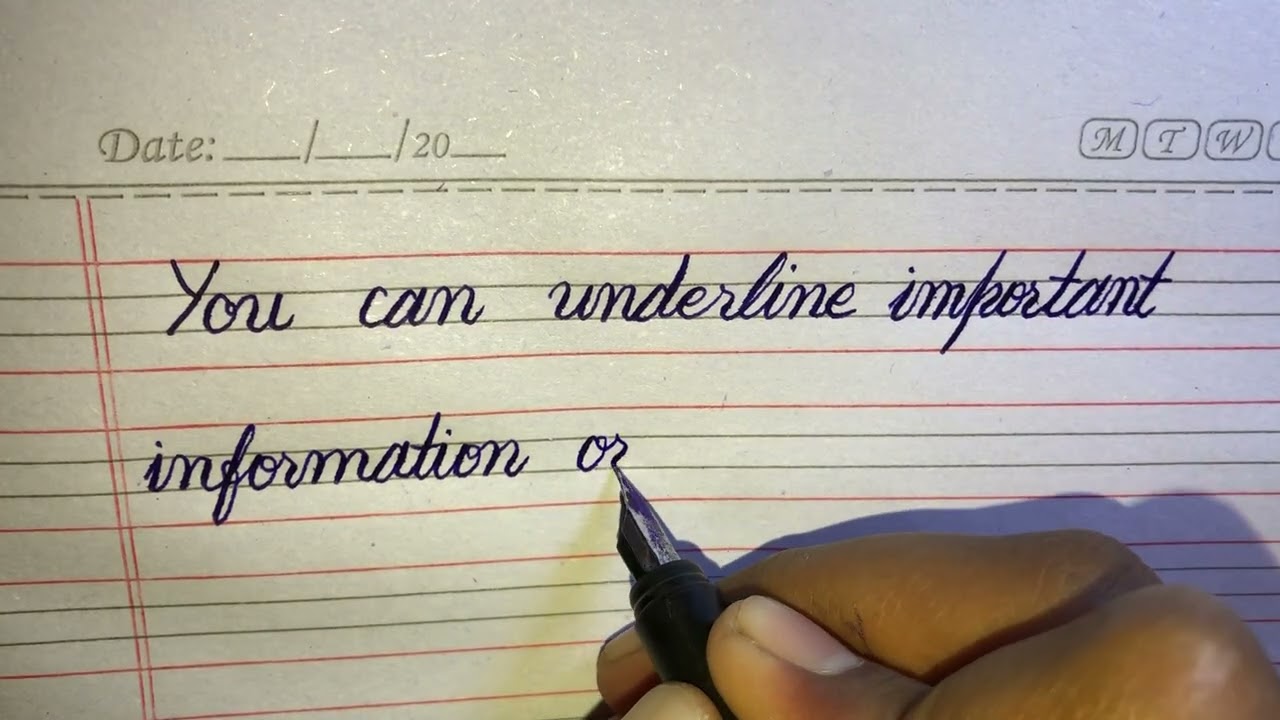 Date: ___/___/20___ M T W
You can underline important
information or